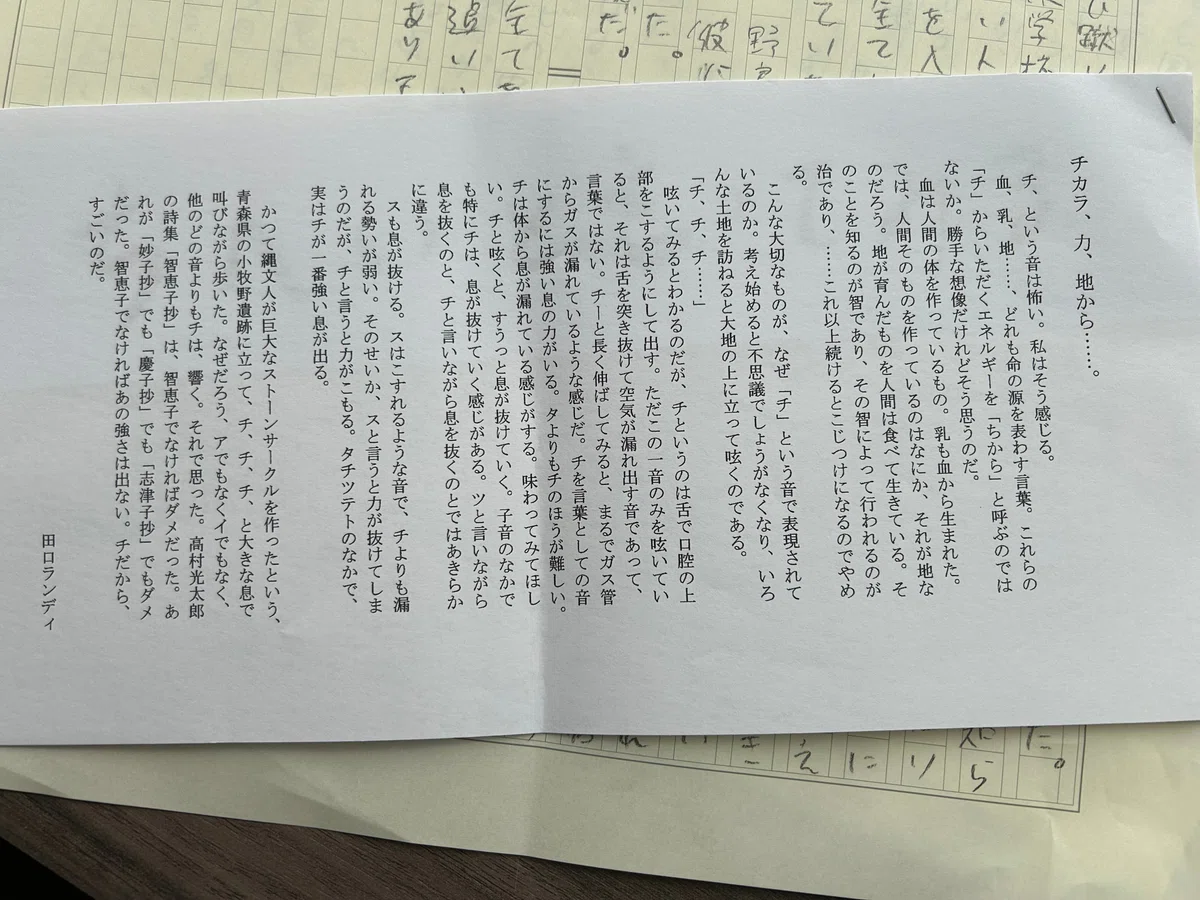 チカラ、力、地から……。
チ、という音は怖い。私はそう感じる。
血、乳、地……、どれも命の源を表わす言葉。これらの
「チ」からいただくエネルギーを「ちから」と呼ぶのでは
ないか。勝手な想像だけれどそう思うのだ。
血は人間の体を作っているもの。乳も血から生まれた。
では、人間そのものを作っているのはなにか、それが地な
のだろう。地が育んだものを人間は食べて生きている。そ
のことを知るのが智であり、その智によって行われるのが
治であり、……これ以上続けるとこじつけになるのでやめ
る。
こんな大切なものが、なぜ「チ」という音で表現されて
いるのか。考え始めると不思議でしょうがなくなり、いろ
んな土地を訪ねると大地の上に立って呟くのである。
「チ、チ、チ……」
呟いてみるとわかるのだが、チというのは舌で口腔の上
部をこするようにして出す。ただこの一音のみを呟いてい
ると、それは舌を突き抜けて空気が漏れ出す音であって、
言葉ではない。チーと長く伸ばしてみると、まるでガス管
からガスが漏れているような感じだ。チを言葉としての音
にするには強い息の力がいる。タよりもチのほうが難しい。
チは体から息が漏れている感じがする。味わってみてほし
い。チと呟くと、すうっと息が抜けていく。子音のなかで
も特にチは、息が抜けていく感じがある。ツと言いながら
息を抜くのと、チと言いながら息を抜くのとではあきらか
に違う。
スも息が抜ける。スはこすれるような音で、チよりも漏
れる勢いが弱い。そのせいか、スと言うと力が抜けてしま
うのだが、チと言うと力がこもる。タチツテトのなかで、
実はチが一番強い息が出る。
かつて縄文人が巨大なストーンサークルを作ったという、
青森県の小牧野遺跡に立って、チ、チ、チ、と大きな息で
叫びながら歩いた。なぜだろう、アでもなくイでもなく、
他のどの音よりもチは、響く。それで思った。高村光太郎
の詩集「智恵子抄」は、智恵子でなければダメだった。あ
れが「妙子抄」でも「慶子抄」でも「志津子抄」でもダメ
だった。智恵子でなければあの強さは出ない。チだから、
すごいのだ。
田口ランディ